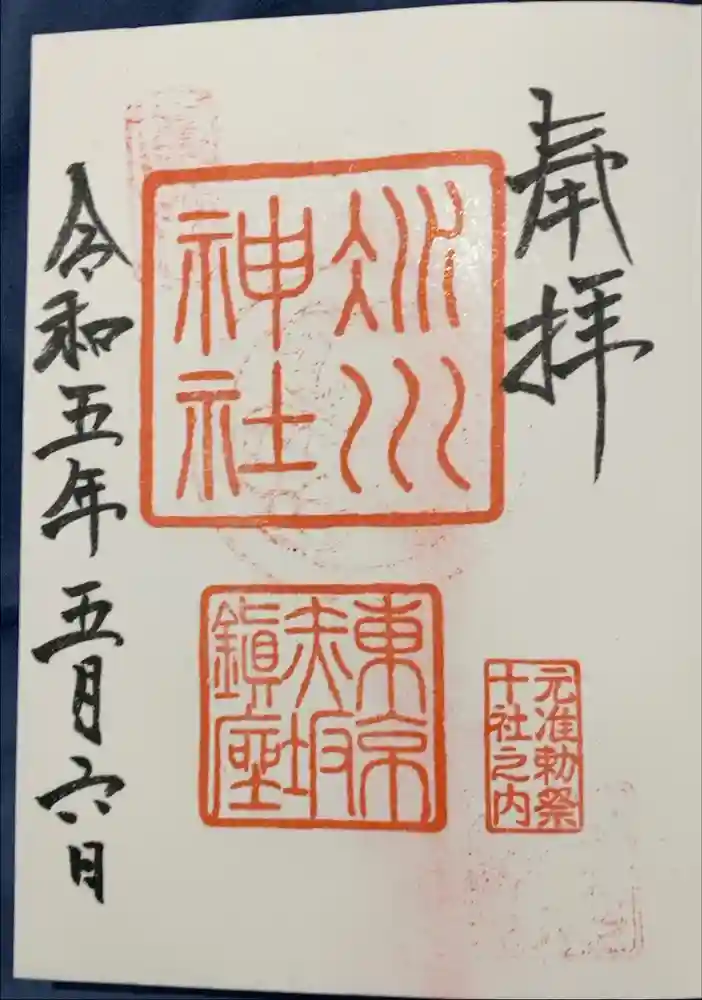 奉拝
氷川
神社
東京
赤坂
鎮座
元准勅祭
十社之内
令和五年五月六日